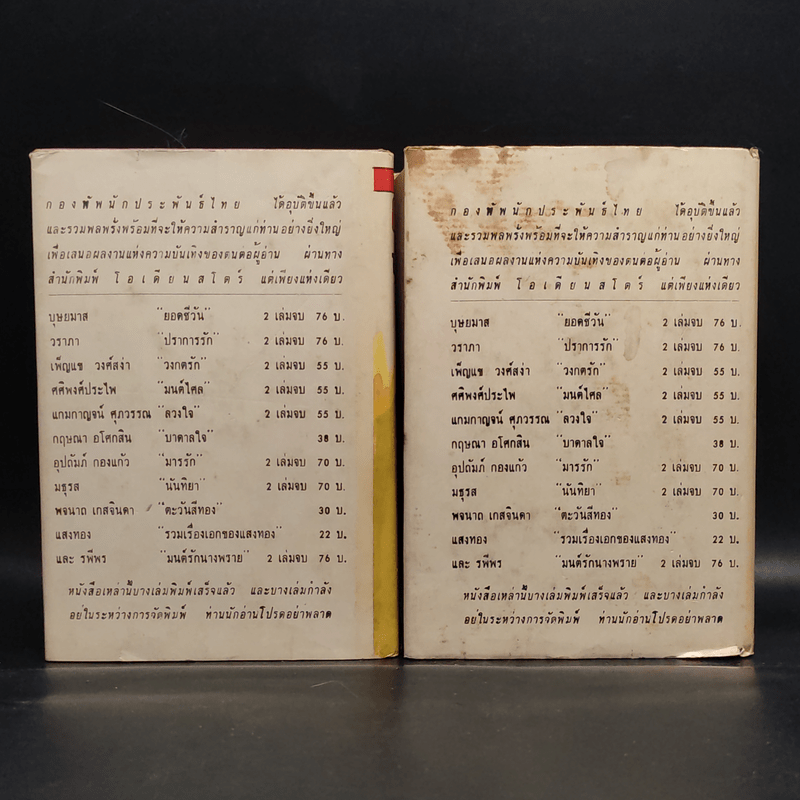 กองทัพนักประพันธ์ไทย ได้อุบัติขึ้นแล้ว
และรวมพลพรั่งพร้อมที่จะให้ความสำราญแก่ท่านอย่างยิ่งใหญ่
เพื่อเสนอผลงานแห่งความบันเทิงของตนต่อผู้อ่าน ผ่านทาง
สำนักพิมพ์ โอเดียนสโตร์ แต่เพียงแห่งเดียว
บุษยมาส "ยอดชีวัน" 2 เล่มจบ 76 บ.
วราภา "ปราการรัก" 2 เล่มจบ 76 บ.
เพ็ญแข วงศ์สง่า "วงกตรัก" 2 เล่มจบ 55 บ.
ศศิพงศ์ประไพ "มนต์ไศล" 2 เล่มจบ 55 บ.
แถมกาญจน์ ศุภวรรณ "ลวงใจ" 2 เล่มจบ 55 บ.
กฤษณา อโศกสิน "บาดาลใจ" 38 บ.
อุปถัมภ์ กองแก้ว "มารรัก" 2 เล่มจบ 70 บ.
มธุรส "นันทิยา" 2 เล่มจบ 70 บ.
พจนาถ เกสจินดา "ตะวันสีทอง" 30 บ.
แสงทอง "รวมเรื่องเอกของแสงทอง" 22 บ.
และ รพีพร "มนต์รักนางพราย" 2 เล่มจบ 76 บ.
หนังสือเหล่านี้บางเล่มพิมพ์เสร็จแล้ว และบางเล่มกำลัง
อยู่ในระหว่างการจัดพิมพ์ ท่านนักอ่านโปรดอย่าพลาด
กองทัพนักประพันธ์ไทย ได้อุบัติขึ้นแล้ว
และรวมพลพรั่งพร้อมที่จะให้ความสำราญแก่ท่านอย่างยิ่งใหญ่
เพื่อเสนอผลงานแห่งความบันเทิงของตนต่อผู้อ่าน ผ่านทาง
สำนักพิมพ์ โอเดียนสโตร์ แต่เพียงแห่งเดียว
บุษยมาส "ยอดชีวัน" 2 เล่มจบ 76 บ.
วราภา "ปราการรัก" 2 เล่มจบ 76 บ.
เพ็ญแข วงศ์สง่า "วงกตรัก" 2 เล่มจบ 55 บ.
ศศิพงศ์ประไพ "มนต์ไศล" 2 เล่มจบ 55 บ.
แถมกาญจน์ ศุภวรรณ "ลวงใจ" 2 เล่มจบ 55 บ.
กฤษณา อโศกสิน "บาดาลใจ" 38 บ.
อุปถัมภ์ กองแก้ว "มารรัก" 2 เล่มจบ 70 บ.
มธุรส "นันทิยา" 2 เล่มจบ 70 บ.
พจนาถ เกสจินดา "ตะวันสีทอง" 30 บ.
แสงทอง "รวมเรื่องเอกของแสงทอง" 22 บ.
และ รพีพร "มนต์รักนางพราย" 2 เล่มจบ 76 บ.
หนังสือเหล่านี้บางเล่มพิมพ์เสร็จแล้ว และบางเล่มกำลัง
อยู่ในระหว่างการจัดพิมพ์ ท่านนักอ่านโปรดอย่าพลาด